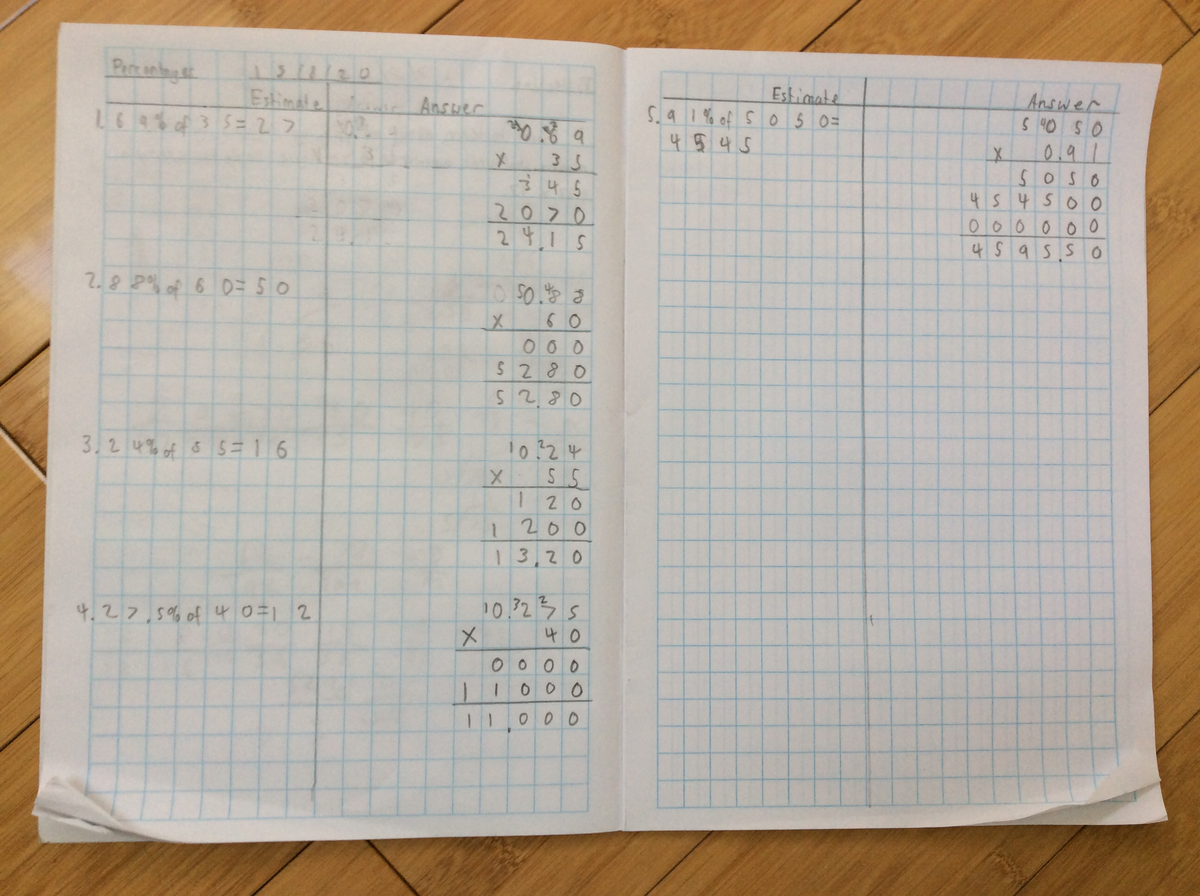 Percentages 15/8/20
Estimate Answer
1. 69% of 35=27
0.69
x 35
345
2070
24.15
2. 88% of 60=50
0.88
x 60
000
5280
52.80
3. 24% of 55=16
0.24
x 55
120
1200
13.20
4. 27.5% of 40=12
0.275
x 40
0000
11000
11.000
Estimate Answer
5. 91% of 5050=
4545
5050
x 0.91
5050
454500
000000
4595.50